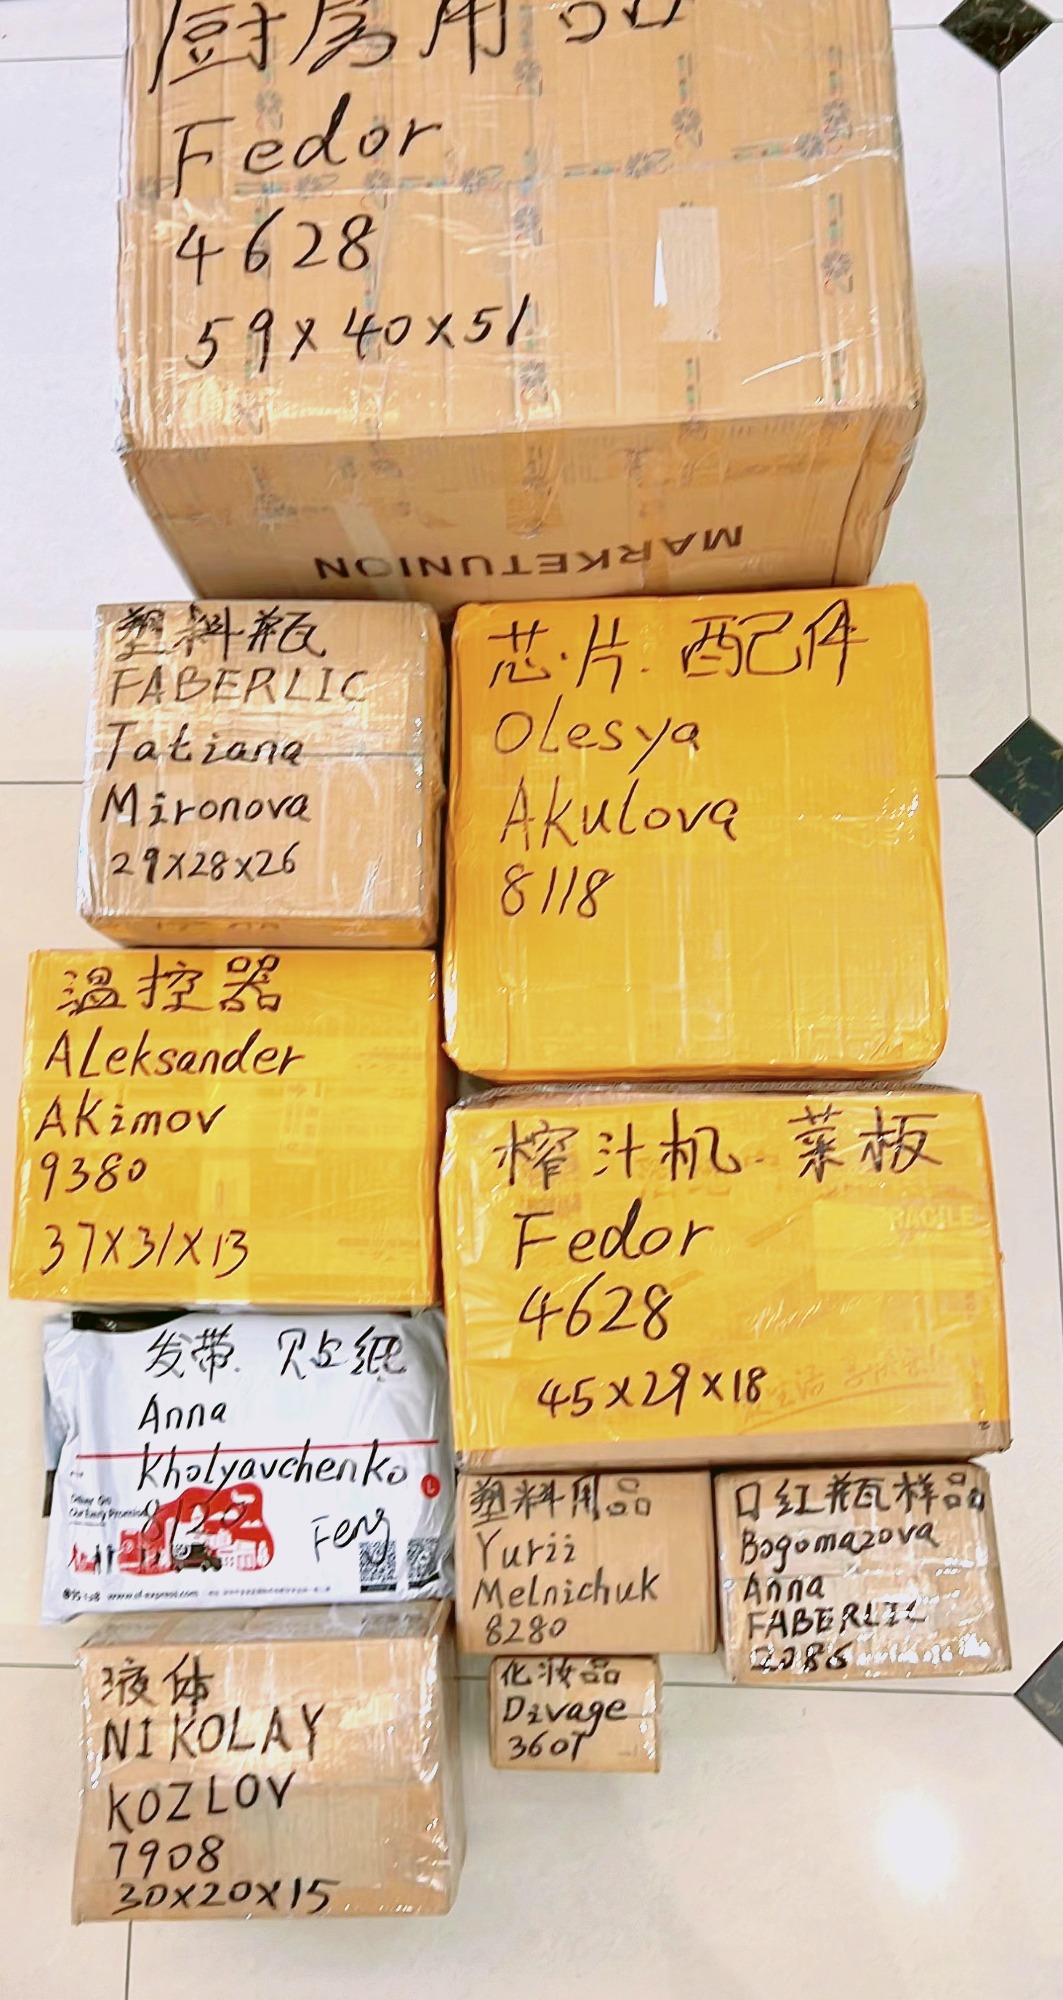 厨房用品
Fedor
4628
59x40x51
MARKETUNION
塑料瓶
FABERLIC
Tatiana
Mironova
29x28x26
芯片.配件
Olesya
Akulova
8118
温控器
Aleksander
Akimov
9380
37x31x13
榨汁机.菜板
Fedor
4628
45x29x18
FRAGILE
发带.贴纸
Anna
Kholyavchenko
8120
Feng
www.sf-express.com
塑料用品
Yurii
Melnichuk
8280
口红瓶样品
Bogomazova
Anna
FABERLIC
2086
液体
NIKOLAY
KOZLOV
7908
30x20x15
化妆品
Divage
360T